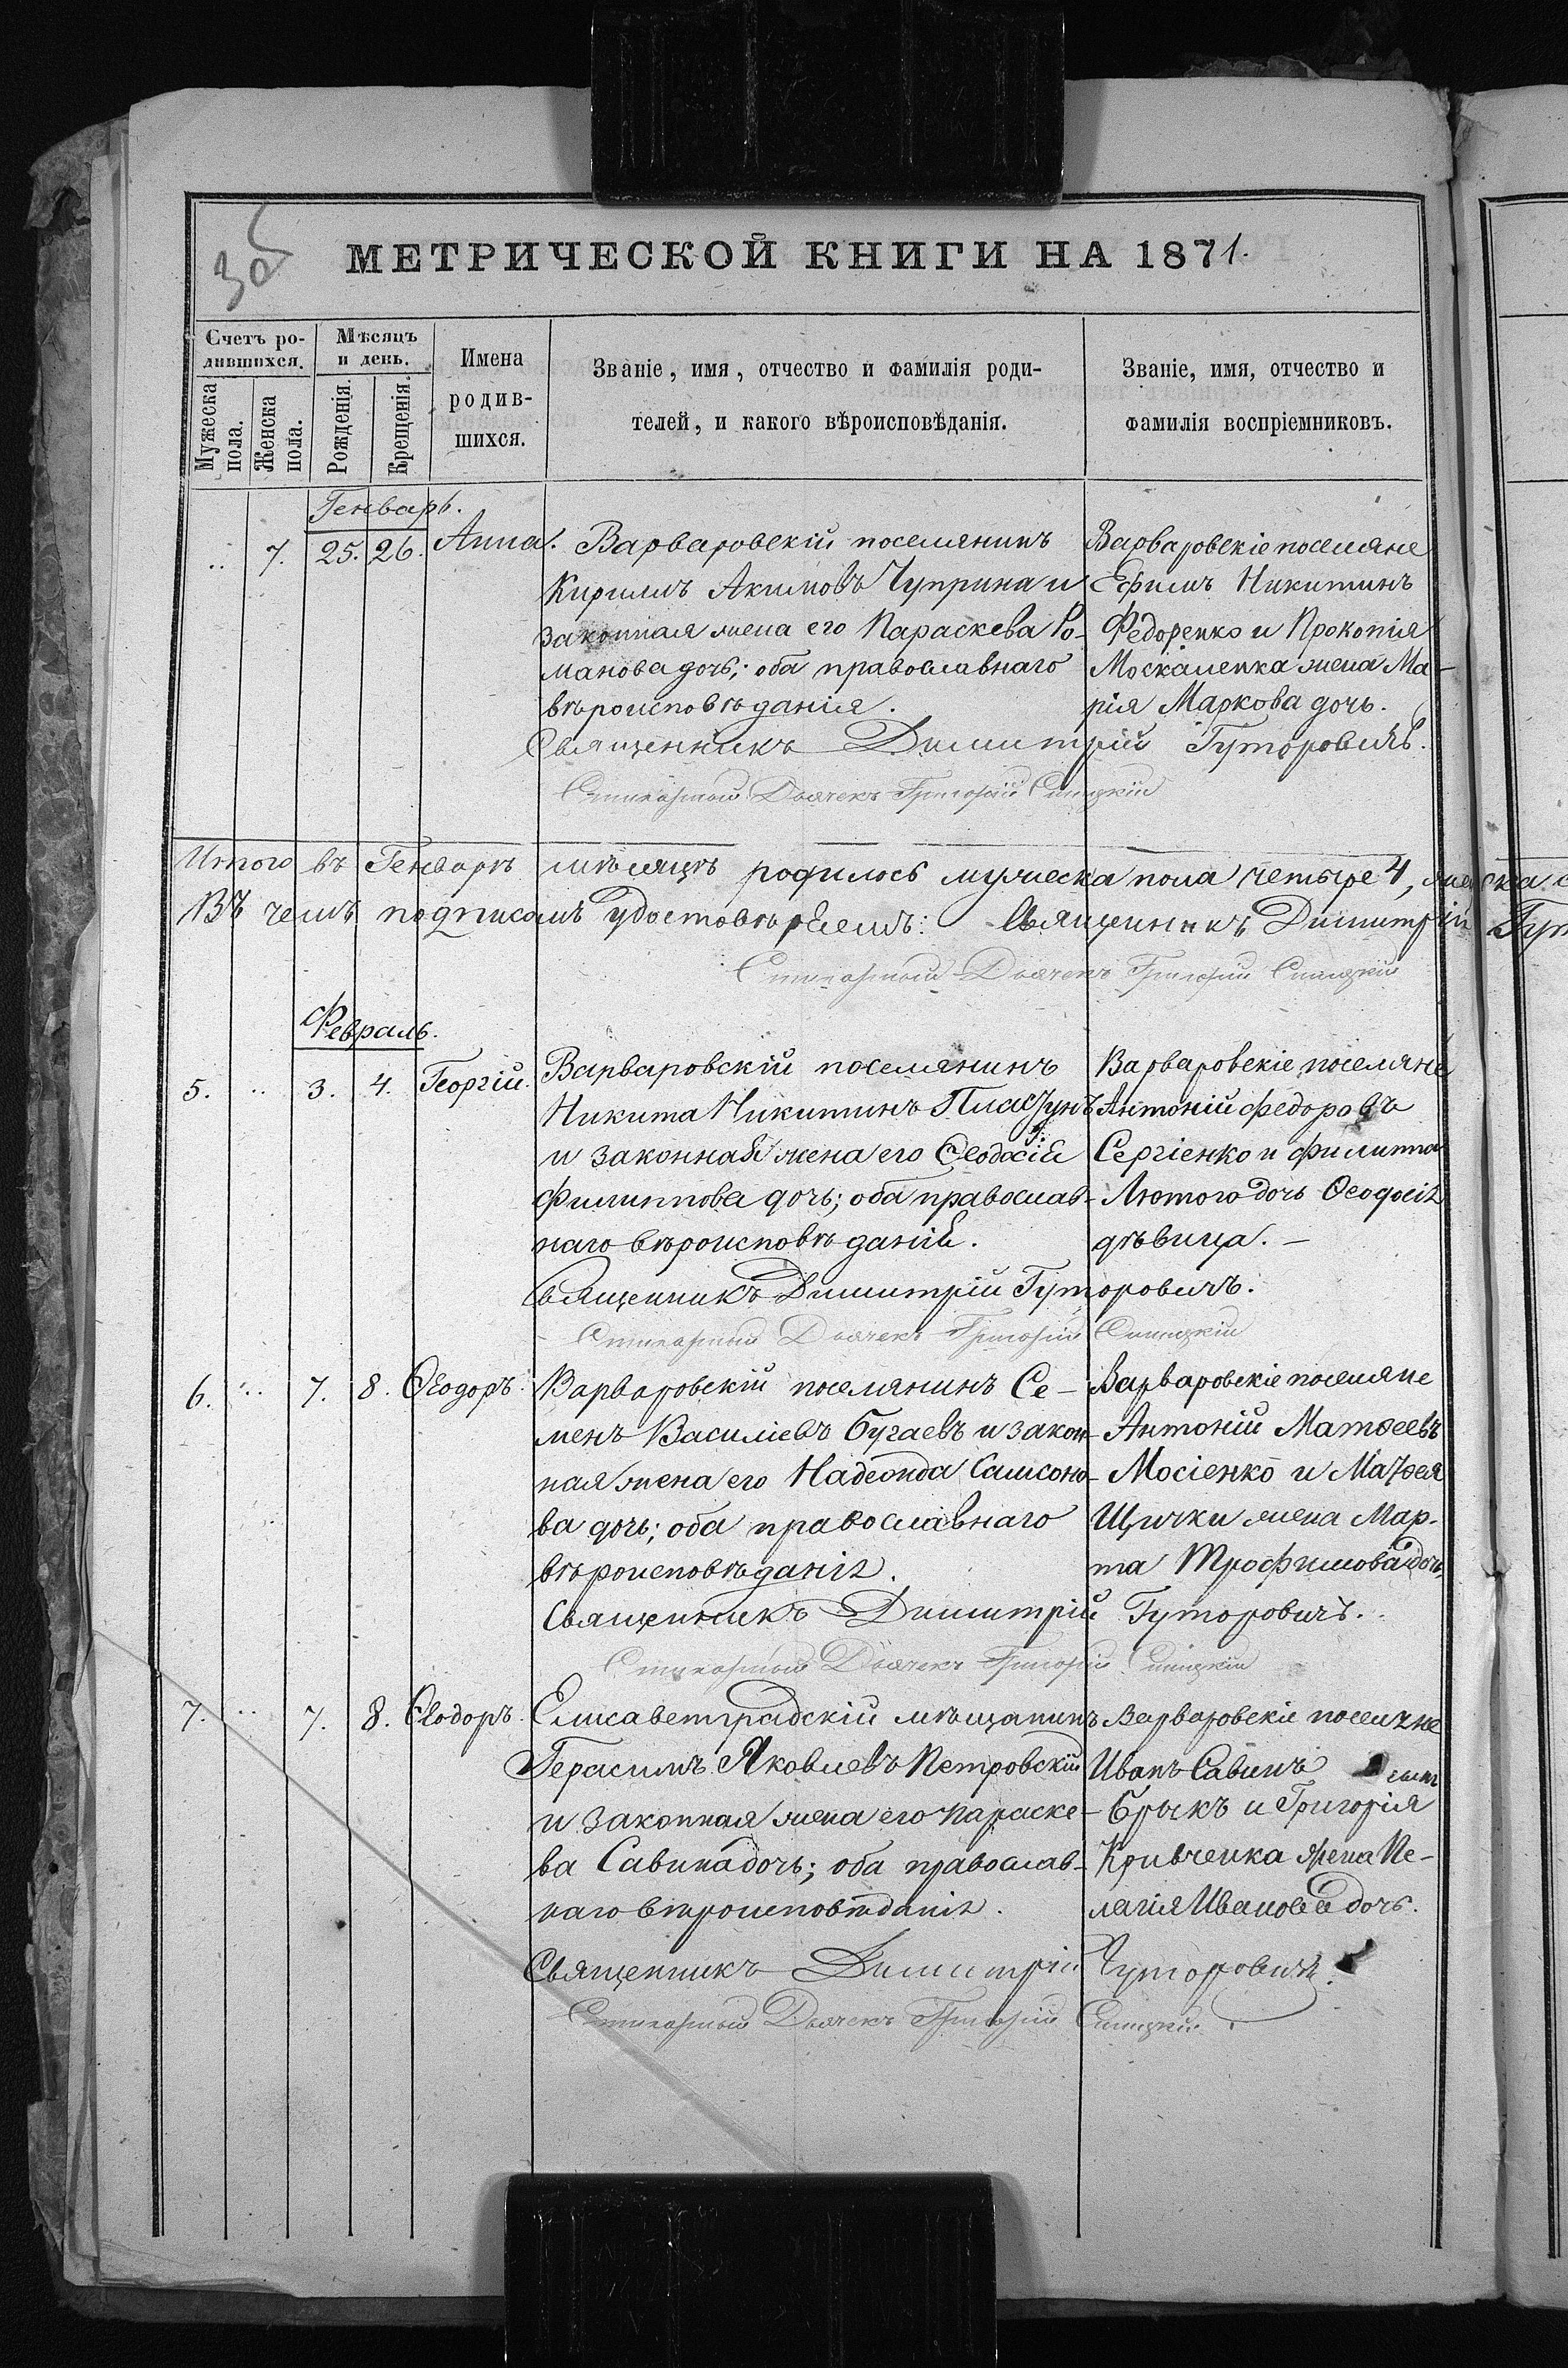 30
МЕТРИЧЕСКОЙ КНИГИ НА 1871.
Счетъ ро-
дившихся.
Мужеска пола.
Женска пола.
Мѣсяцъ
и день.
Рожденія.
Крещенія.
Имена
родив-
шихся.
Званіе, имя, отчество и фамилія роди-
телей, и какого вѣроисповѣданія.
Званіе, имя, отчество и
фамилія воспріемниковъ.
Генварь.
.. 7. 25. 26. Анна.
Варваровскій поселянинъ
Кириллъ Акимовъ Чуприна и
законная жена его Параскева Ро-
манова дочь; оба православнаго
вѣроисповѣданія.
Варваровскіе поселяне
Ефимъ Никитинъ
Федоренко и Прокопія
Москаленка жена Ма-
рія Маркова дочь.
Священникъ Димитрій Гуторовичъ.
Стихарный Дьячекъ Григорій
Итого въ Генварѣ мѣсяцѣ родилось мужеска пола четыре 4, женска
Въ чемъ подписомъ удостовѣряемъ: Священникъ Димитрій Гут
Стихарный Дьячекъ Григорій
Февраль.
5. .. 3. 4. Георгій.
Варваровскій поселянинъ
Никита Никитинъ Пластунъ
и законная жена его Ѳеодосія
Филиппова дочь; оба православ-
наго вѣроисповѣданія.
Варваровскіе поселяне
Антоній Федоровъ
Сергіенко и Филиппа
Лютого дочь Ѳеодосія
дѣвица.-
Священникъ Димитрій Гуторовичъ.
Стихарный Дьячекъ Григорій
6. .. 7. 8. Ѳеодоръ.
Варваровскій поселянинъ Се-
менъ Василіевъ Бугаевъ и закон-
ная жена его Надежда Самсоно-
ва дочь; оба православнаго
вѣроисповѣданія.
Варваровскіе поселяне
Антоній Матѳеевъ
Мосіенко и Матѳея
Щички жена Мар-
та Трофимова дочь.
Священникъ Димитрій Гуторовичъ.
Стихарный Дьячекъ Григорій
7. .. 7. 8. Ѳеодоръ.
Елисаветградскій мѣщанинъ
Герасимъ Яковлевъ Петровскій
и законная жена его Параске-
ва Савина дочь; оба православ-
наго вѣроисповѣданія.
Варваровскіе поселяне
Иванъ Савинъ
Брыкъ и Григорія
Кривченка жена Пе-
лагія Иванова дочь.
Священникъ Димитрій Гуторовичъ.
Стихарный Дьячекъ Григорій